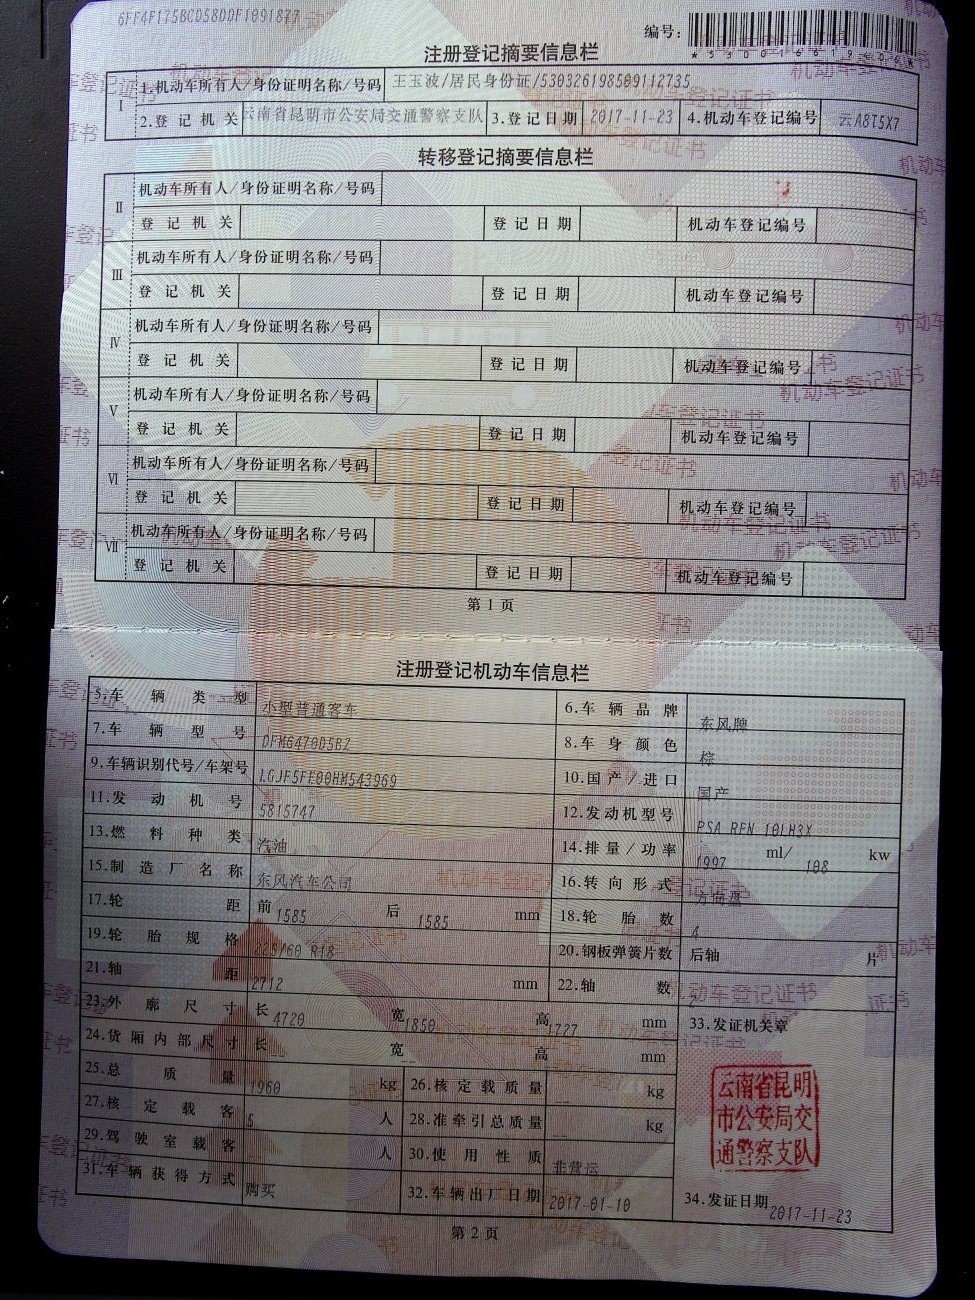 6FF4F175BCD58DDF1091877
编号:
*530016619406*
注册登记摘要信息栏
Ⅰ 1.机动车所有人/身份证明名称/号码 王玉波/居民身份证/530326198509112735
2.登记机关 云南省昆明市公安局交通警察支队 3.登记日期 2017-11-23 4.机动车登记编号 云A8T5X7
转移登记摘要信息栏
Ⅱ 机动车所有人/身份证明名称/号码
登记机关 登记日期 机动车登记编号
Ⅲ 机动车所有人/身份证明名称/号码
登记机关 登记日期 机动车登记编号
Ⅳ 机动车所有人/身份证明名称/号码
登记机关 登记日期 机动车登记编号
Ⅴ 机动车所有人/身份证明名称/号码
登记机关 登记日期 机动车登记编号
Ⅵ 机动车所有人/身份证明名称/号码
登记机关 登记日期 机动车登记编号
Ⅶ 机动车所有人/身份证明名称/号码
登记机关 登记日期 机动车登记编号
第1页
注册登记机动车信息栏
5.车辆类型 小型普通客车 6.车辆品牌 东风牌
7.车辆型号 DFM6470D5BZ 8.车身颜色 棕
9.车辆识别代号/车架号 LGJF5FE00HM543969 10.国产/进口 国产
11.发动机号 5815747 12.发动机型号 PSA RFN 10LH3X
13.燃料种类 汽油 14.排量/功率 1997 ml/ 108 kw
15.制造厂名称 东风汽车公司 16.转向形式 方向盘
17.轮距 前 1585 后 1585 mm 18.轮胎数 4
19.轮胎规格 225/60 R18 20.钢板弹簧片数 后轴 片
21.轴距 2712 mm 22.轴数 2
23.外廓尺寸 长 4720 宽 1850 高 1727 mm 33.发证机关章
24.货厢内部尺寸 长 -- 宽 -- 高 mm
25.总质量 1960 kg 26.核定载质量 -- kg
27.核定载客 5 人 28.准牵引总质量 -- kg
29.驾驶室载客 -- 人 30.使用性质 非营运
31.车辆获得方式 购买 32.车辆出厂日期 2017-01-10 34.发证日期 2017-11-23
云南省昆明
市公安局交
通警察支队
第2页